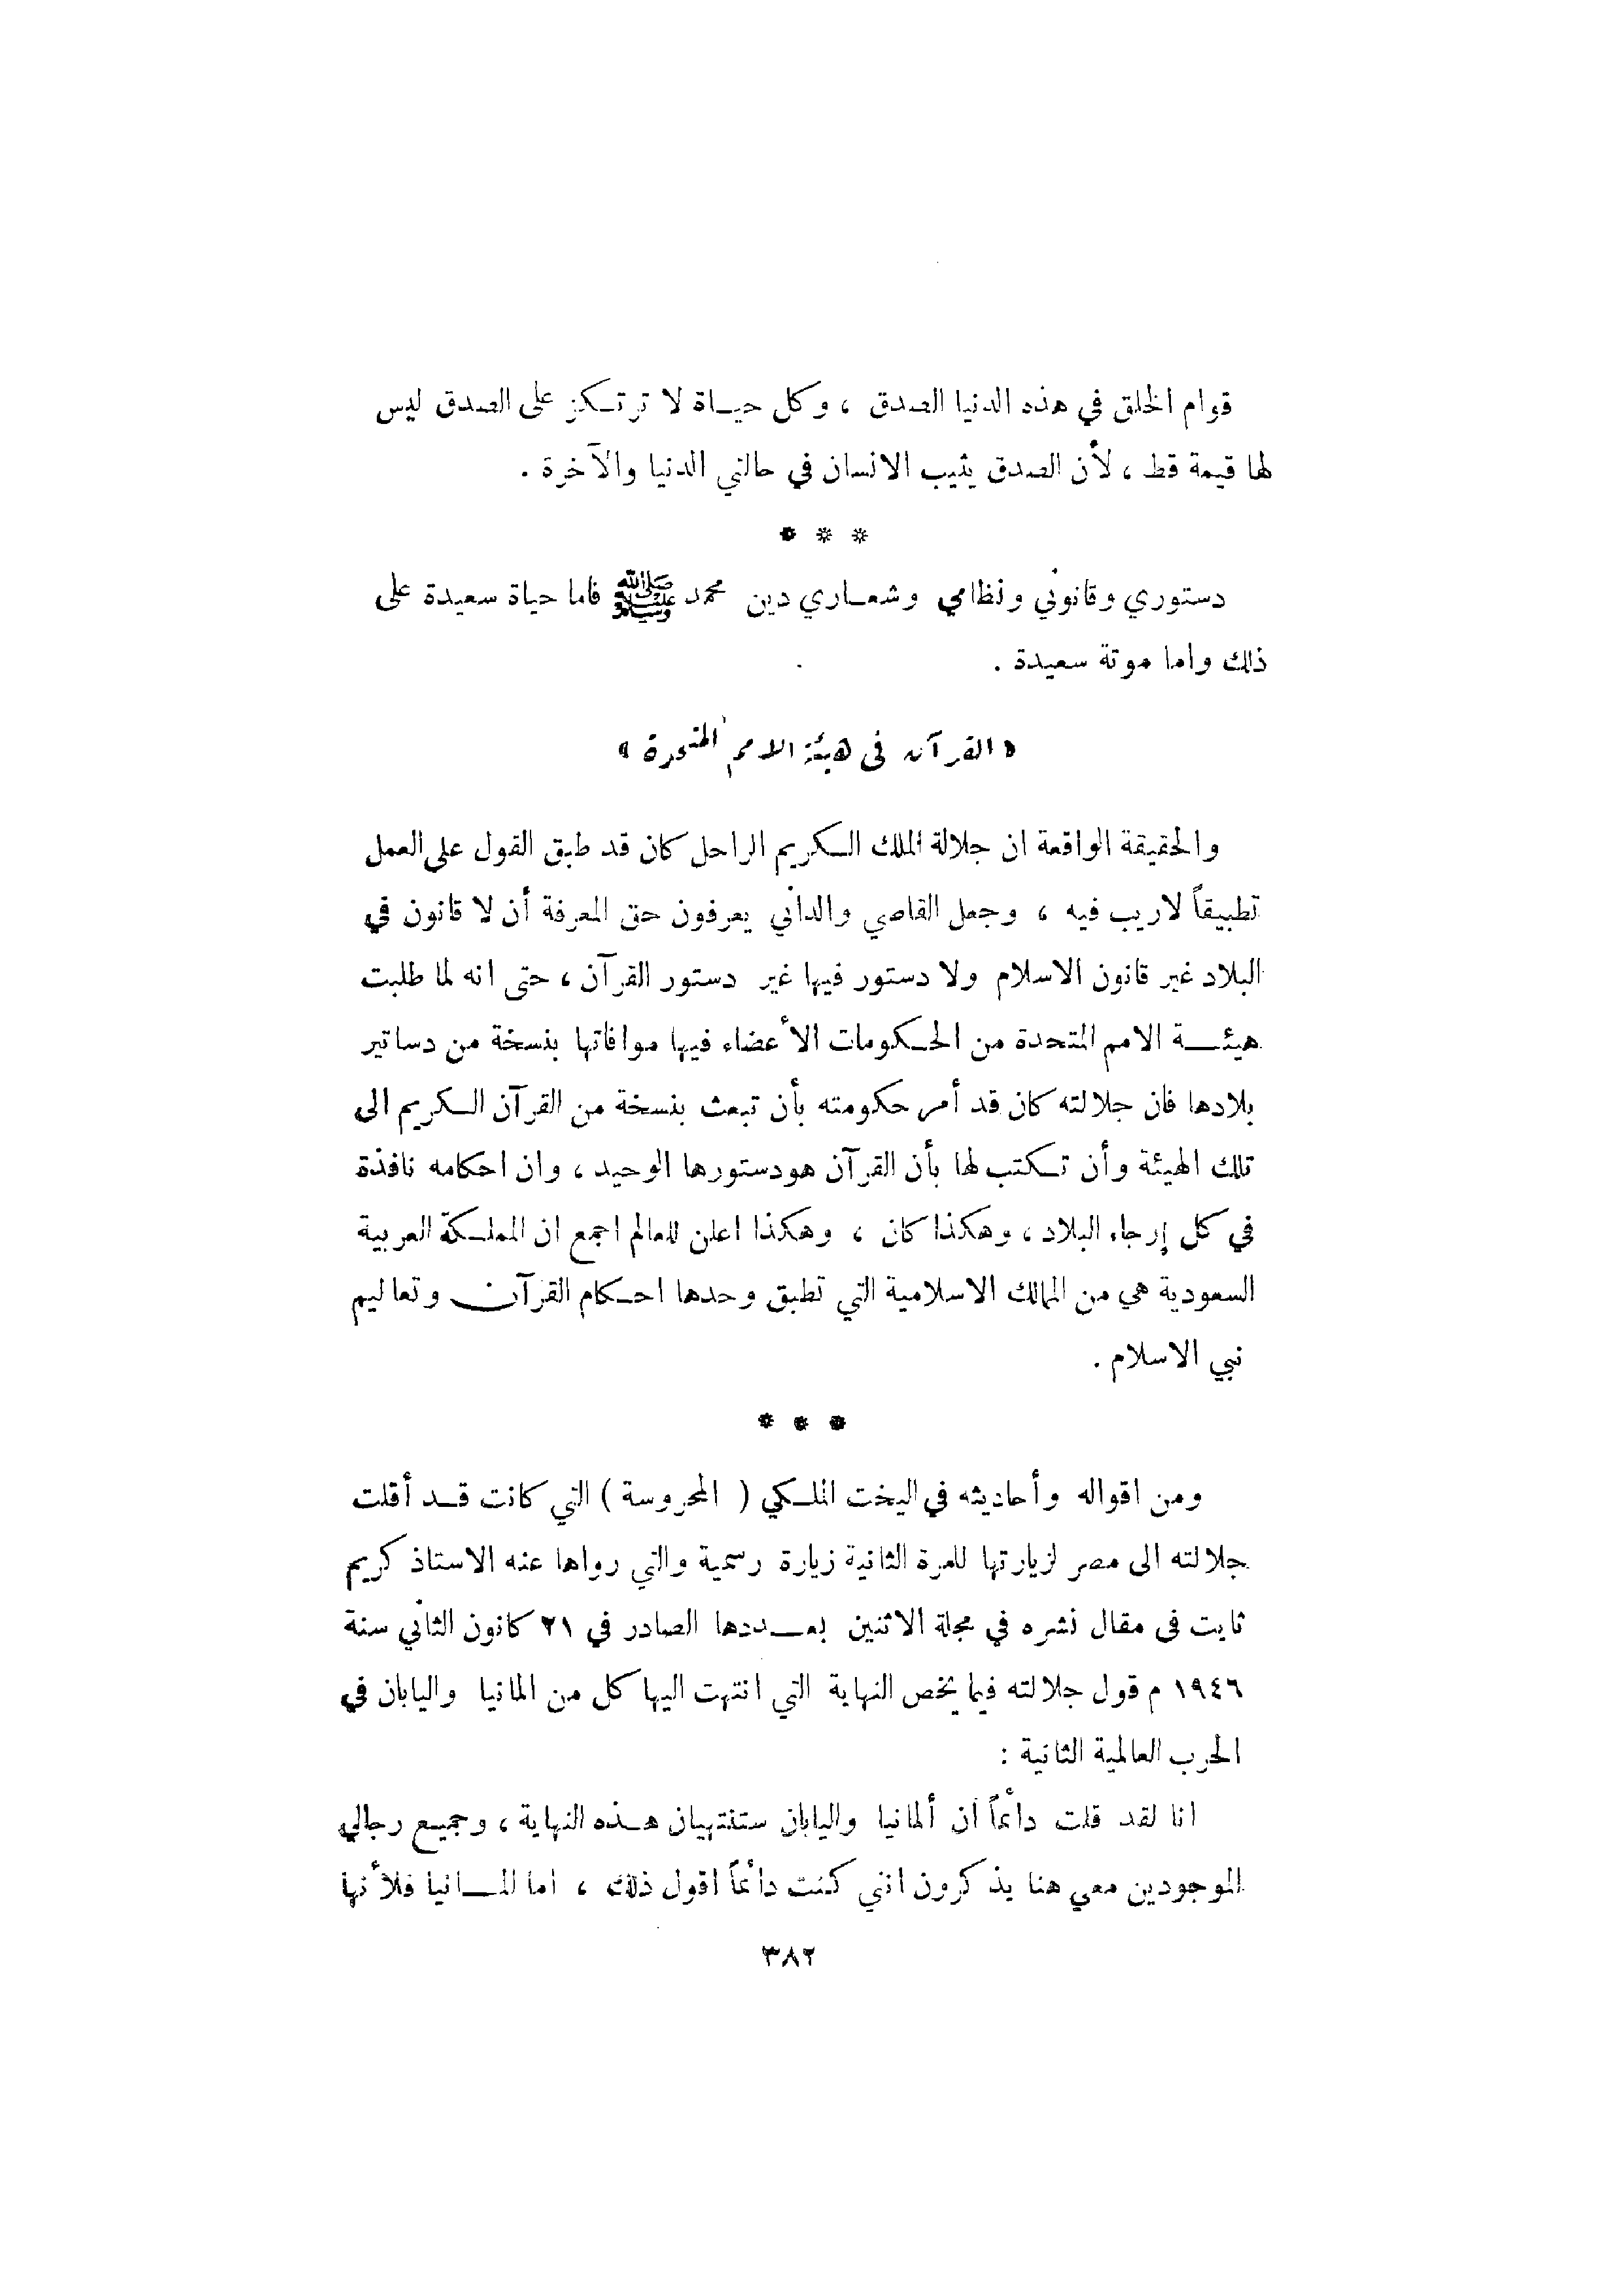 قوام الخلق في هذه الدنيا الصدق ، وكل حياة لا ترتكز على الصدق ليس
لها قيمة قط ، لأن الصدق يثيب الانسان في حالتي الدنيا والآخرة .
* * *
دستوري وقانوني ونظامي وشعاري دين محمد ﷺ فاما حياة سعيدة على
ذلك واما موتة سعيدة .
« القرآن في هيئة الامم المتحدة »
والحقيقة الواقعة ان جلالة الملك الكريم الراحل كان قد طبق القول على العمل
تطبيقاً لاريب فيه ، وجعل القاصي والداني يعرفون حق المعرفة أن لا قانون في
البلاد غير قانون الاسلام ولا دستور فيها غير دستور القرآن ، حتى انه لما طلبت
هيئة الامم المتحدة من الحكومات الأعضاء فيها موافاتها بنسخة من دساتير
بلادها فان جلالته كان قد أمر حكومته بأن تبعث بنسخة من القرآن الكريم الى
تلك الهيئة وأن تكتب لها بأن القرآن هودستورها الوحيد ، وان احكامه نافذة
في كل إرجاء البلاد ، وهكذا كان ، وهكذا اعلن للعالم اجمع ان المملكة العربية
السعودية هي من الممالك الاسلامية التي تطبق وحدها احكام القرآن وتعاليم
نبي الاسلام .
* * *
ومن اقواله وأحاديثه في اليخت الملكي ( المحروسة ) التي كانت قد أقلت
جلالته الى مصر لزيارتها للمرة الثانية زيارة رسمية والتي رواها عنه الاستاذ كريم
ثابت في مقال نشره في مجلة الاثنين بعددها الصادر في ٢١ كانون الثاني سنة
١٩٤٦ م قول جلالته فيما يخص النهاية التي انتهت اليها كل من المانيا واليابان في
الحرب العالمية الثانية :
انا لقد قلت دائماً أن ألمانيا واليابان ستنتهيان هذه النهاية ، وجميع رجالي
الموجودين معي هنا يذكرون انني كنت دائماً اقول ذلك ، اما المانيا فلأنها
٣٨٢